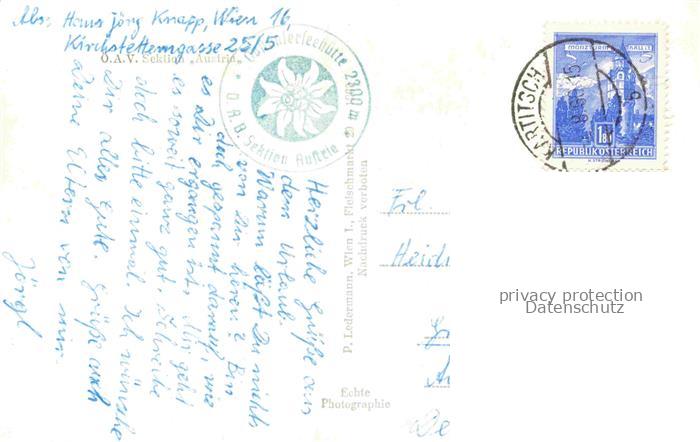 Abs: Hans jörg Knapp, Wien 16,
Kirchstetterngasse 25/5
O.A.V. Sektion „Austria"
2300 m
Sektion Austria
MÜNZTURM HALL i. T.
KARTITSCH
1.80
REPUBLIK ÖSTERREICH
Herzliche Grüße aus
dem Urlaub.
Warum läßt Du nichts
von Dir hören? Bin
auch gespannt darauf, wie
es Dir ergangen ist. Mir geht
es soweit ganz gut. Schreibe
doch bitte einmal. Ich wünsche
Dir alles Gute. Grüße auch
Deine Eltern von mir.
Jörgl
P. Ledermann, Wien I., Fleischmarkt 20
Nachdruck verboten
Echte
Photographie
Frl.
Heidi
privacy protection
Datenschutz